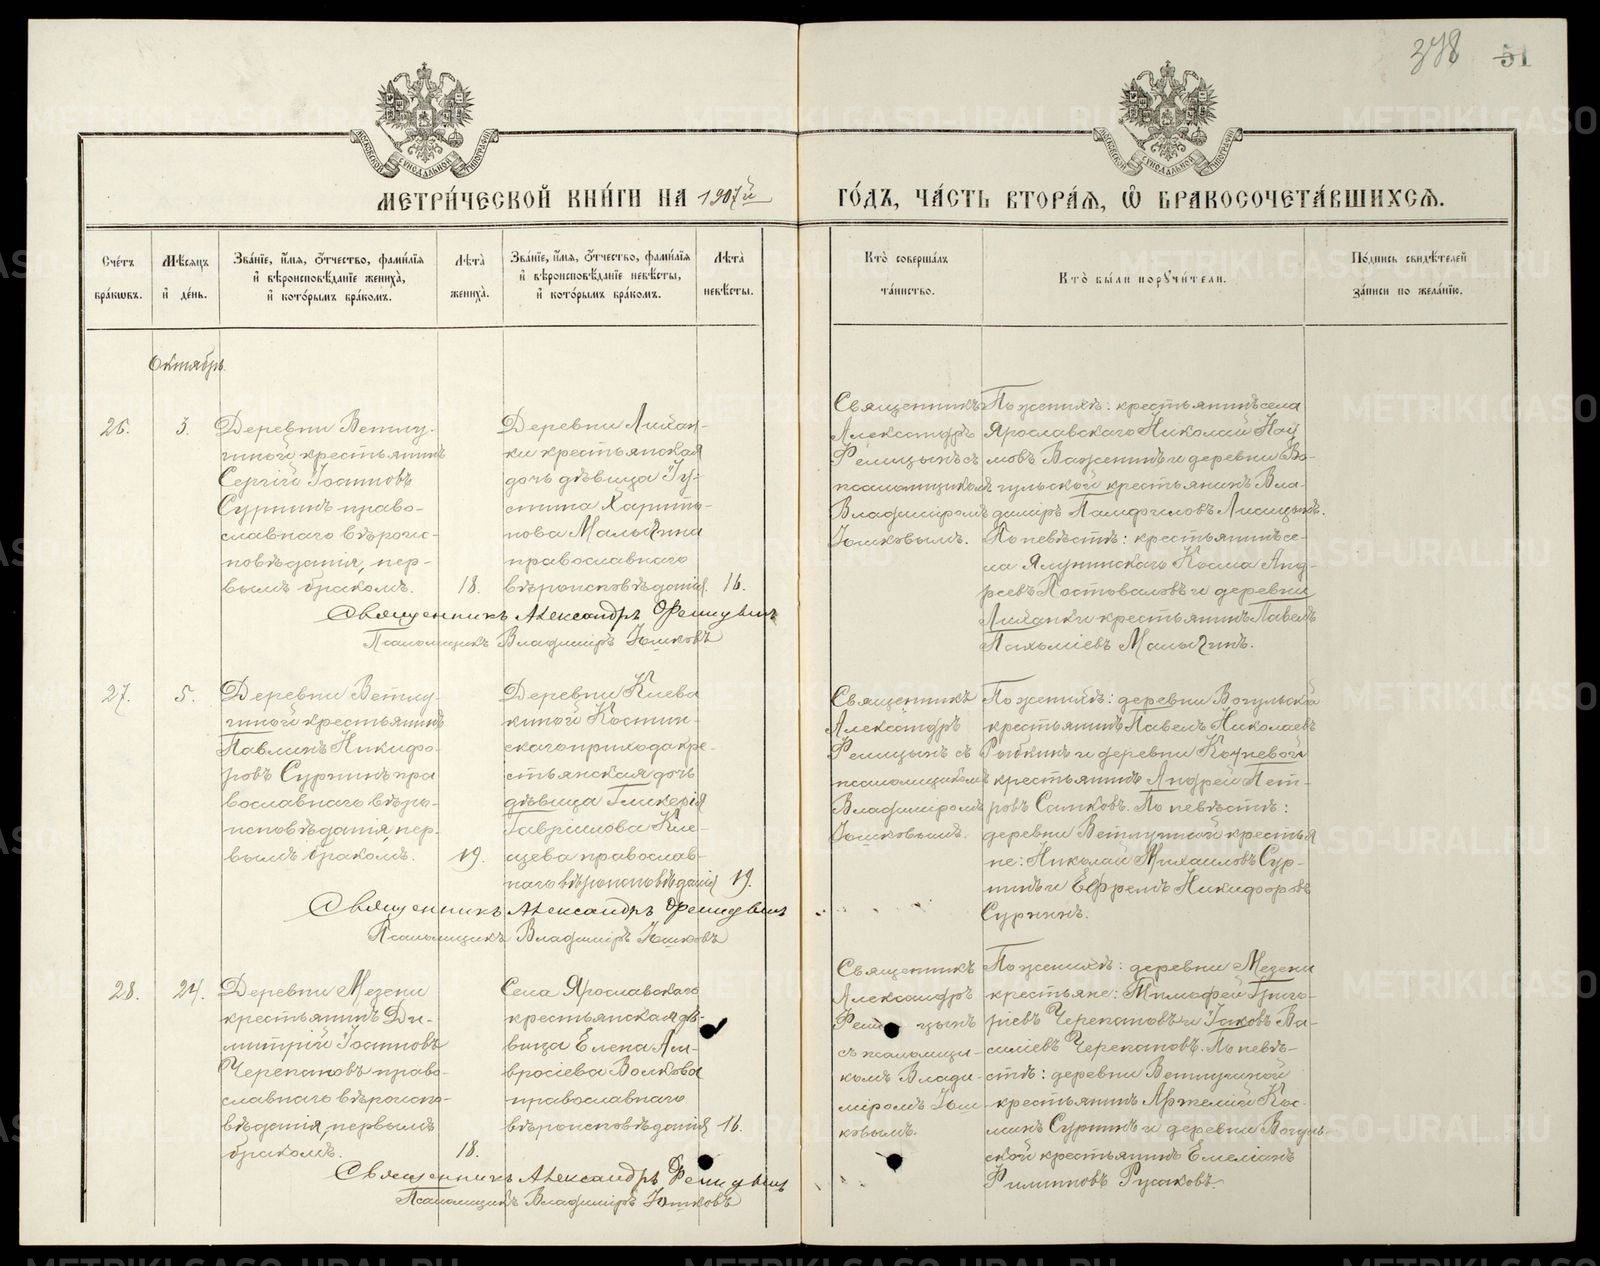 378 51
МЕТРИ́ЧЕСКОЙ КНИ́ГИ НА 1907й ГО́ДЪ, ЧА́СТЬ ВТОРА́Я, Ѿ БРАКОСОЧЕТА́ВШИХСЯ.
Сче́тъ бра́ковъ.
Мѣ́сяцъ и҆ де́нь.
Зва́нїе, и҆́мѧ, ѻ҆́тчество, фами́лїѧ
и҆ вѣроисповѣ́данїе жениха̀,
и҆ кото́рымъ бра́комъ.
Лѣта̀ жениха̀.
Зва́нїе, и҆́мѧ, ѻ҆́тчество, фами́лїѧ
и҆ вѣроисповѣ́данїе невѣ́сты,
и҆ кото́рымъ бра́комъ.
Лѣта̀ невѣ́сты.
Кто̀ соверша́лъ та́инство.
Кто̀ бы́ли порꙋчи́тели.
По́дпись свидѣ́телей
за́писи по жела́нїю.
Октябрь
26.
3.
Деревни Ветлу-
гиной крестьянинъ
Сергій Іоанновъ
Суринъ право-
славнаго вѣроис-
повѣданія, пер-
вымъ бракомъ.
18.
Деревни Лихан-
ки крестьянская
дочь дѣвица Іу-
стина Харито-
нова Малыгина
православнаго
вѣроисповѣданія
16.
Священникъ
Александръ
Фелицынъ съ
псаломщикомъ
Владиміромъ
Юшковымъ.
По женихѣ: крестьянинъ села
Ярославскаго Николай Нау
мовъ Важенинъ и деревни Во-
гульской крестьянинъ Вла-
диміръ Памфиловъ Лисицынъ.
По невѣстѣ: крестьянинъ се-
ла Ялунинскаго Косма Анд-
реевъ Костоваловъ и деревни
Лиханки крестьянинъ Павелъ
Пахоміевъ Малыгинъ.
Священникъ Александръ Фелицынъ
Псаломщикъ Владиміръ Юшковъ
27.
5.
Деревни Ветлу-
гиной крестьянинъ
Павлинъ Никифо-
ровъ Суринъ пра
вославнаго вѣро-
исповѣданія, пер-
вымъ бракомъ.
19.
Деревни Клева
киной Костин-
скаго прихода кре-
стьянская дочь
дѣвица Гликерія
Гавріилова Кле-
щева православ-
наго вѣроисповѣданія
19.
Священникъ
Александръ
Фелицынъ съ
псаломщикомъ
Владиміромъ
Юшковымъ.
По женихѣ: деревни Вогульской
крестьянинъ Павелъ Николаевъ
Рыбкинъ и деревни Кочневой
крестьянинъ Андрей Пет-
ровъ Сатковъ. По невѣстѣ:
деревни Ветлугиной крестья
не: Николай Михаиловъ Сур-
инъ и Ефремъ Никифоровъ
Суринъ.
Священникъ Александръ Фелицынъ
Псаломщикъ Владиміръ Юшковъ
28.
24.
Деревни Мезени
крестьянинъ Ди-
митрій Іоанновъ
Черепановъ право-
славнаго вѣроиспо-
вѣданія, первымъ
бракомъ.
18.
Села Ярославскаго
крестьянская дѣ-
вица Елена Ам-
вросіева Волкова
православнаго
вѣроисповѣданія
16.
Священникъ
Александръ
Фелицынъ
съ псаломщи-
комъ Влади-
міромъ Юш-
ковымъ.
По женихѣ: деревни Мезени
крестьяне: Тимофей Григо-
ріевъ Черепановъ и Іаковъ Ва-
силіевъ Черепановъ. По невѣ-
стѣ: деревни Ветлугиной
крестьянинъ Артемій Кос
минъ Суринъ и деревни Вогуль-
ской крестьянинъ Емеліанъ
Филипповъ Русаковъ.
Священникъ Александръ Фелицынъ
Псаломщикъ Владиміръ Юшковъ
METRIKI.GASO-URAL.RU